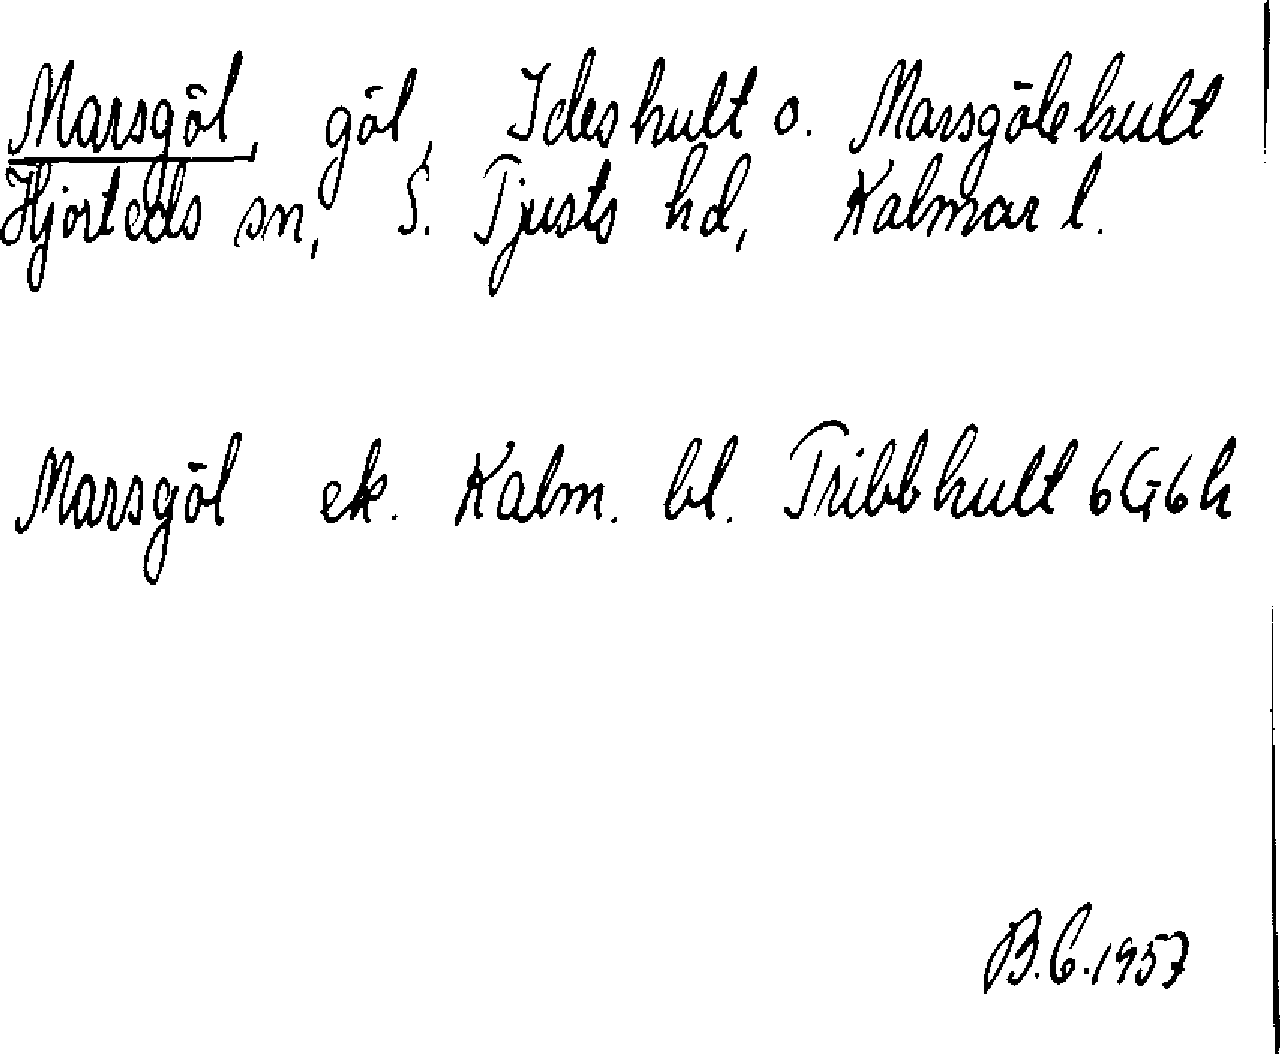 Marsgöl, göl, Ideshult o. Marsgölehult
Hjorteds sn, S. Tjusts hd, Kalmar l.
Marsgöl ek. Kalm. bl. Tribbhult 6G6h
B.C.1957